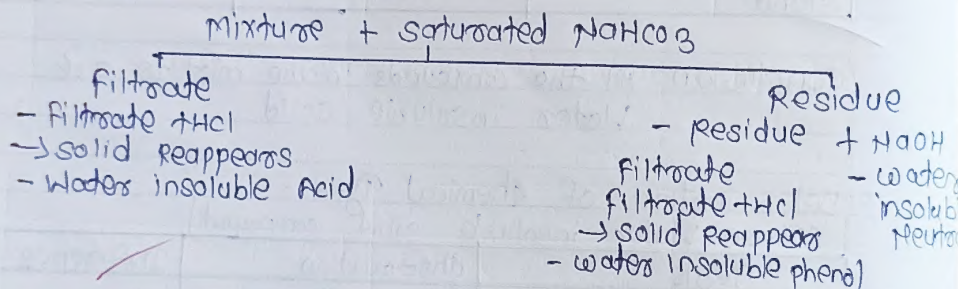 Mixture + saturated NaHCO3
Filtrate
- Filtrate +HCl
→ solid Reappears
- Water insoluble Acid
Residue
- Residue + NaOH
Filtrate
Filtrate +HCl
→ solid Reappears
- water insoluble phenol
- water